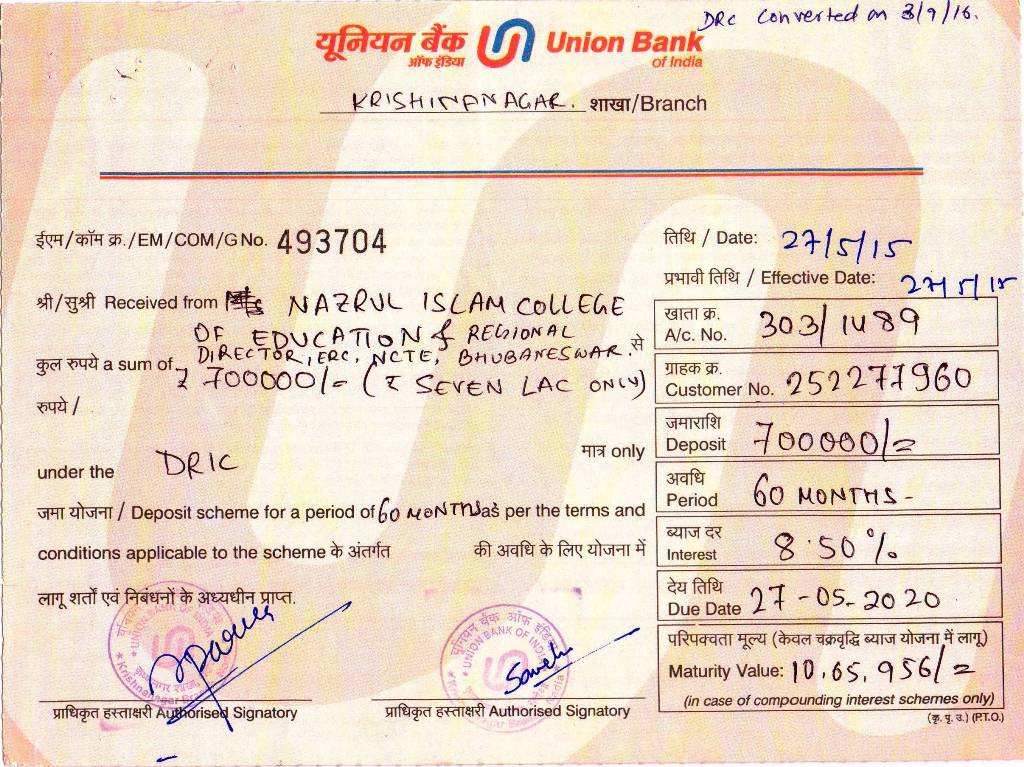 DRC Converted on 3/9/16.
यूनियन बैंक Union Bank
ऑफ इंडिया of India
KRISHNANAGAR. शाखा/Branch
ईएम/कॉम क्र./EM/COM/G No. 493704
तिथि / Date: 27/5/15
प्रभावी तिथि / Effective Date: 27/5/15
श्री/सुश्री Received from NAZRUL ISLAM COLLEGE
OF EDUCATION & REGIONAL
DIRECTOR, ERC, NCTE, BHUBANESWAR. से
कुल रुपये a sum of ₹ 700000/= (₹ SEVEN LAC ONLY)
रुपये /
मात्र only
under the DRIC
जमा योजना / Deposit scheme for a period of 60 MONTHS as per the terms and
conditions applicable to the scheme के अंतर्गत की अवधि के लिए योजना में
लागू शर्तों एवं निबंधनों के अध्यधीन प्राप्त.
खाता क्र.
A/c. No. 303/1489
ग्राहक क्र.
Customer No. 252277960
जमाराशि
Deposit 700000/=
अवधि
Period 60 MONTHS -
ब्याज दर
Interest 8.50%
देय तिथि
Due Date 27-05-2020
परिपक्वता मूल्य (केवल चक्रवृद्धि ब्याज योजना में लागू)
Maturity Value: 10,65,956/=
(in case of compounding interest schemes only)
यूनियन बैंक ऑफ इंडिया
UNION BANK OF INDIA
प्राधिकृत हस्ताक्षरी Authorised Signatory
प्राधिकृत हस्ताक्षरी Authorised Signatory
(कृ. पृ. उ.) (P.T.O.)